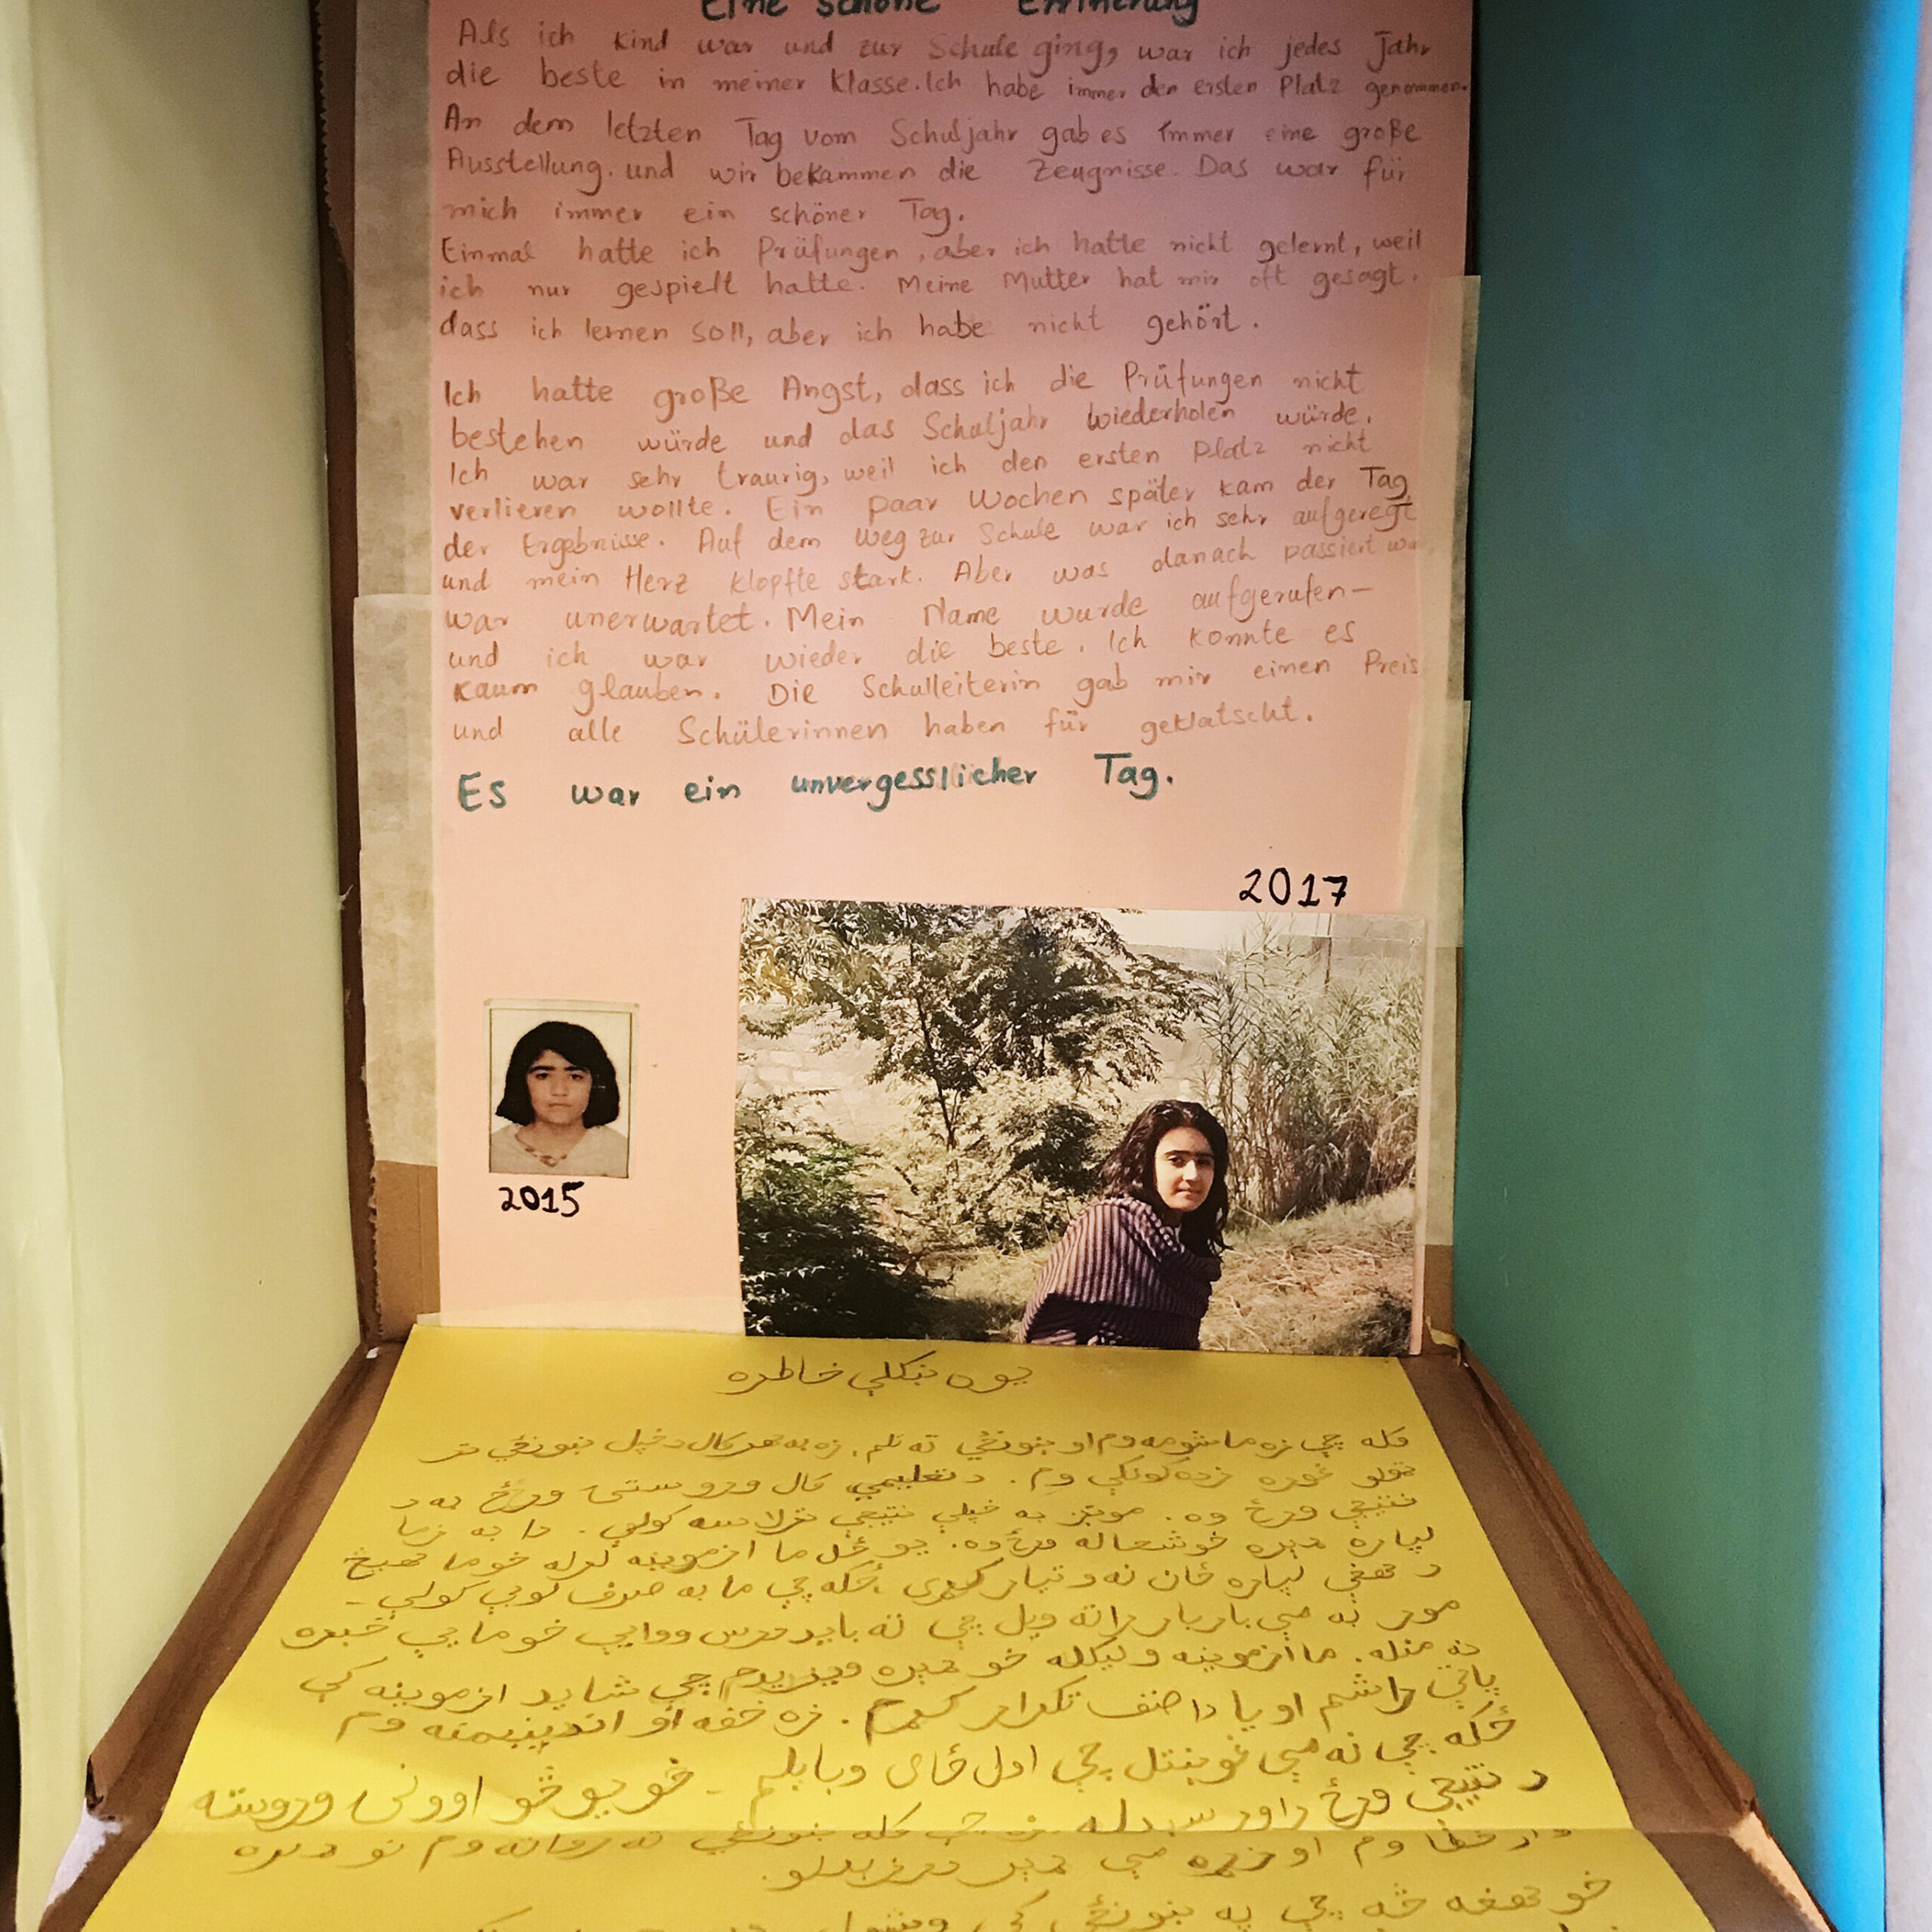 Eine schöne Erinnerung
Als ich kind war und zur Schule ging, war ich jedes Jahr
die beste in meiner Klasse. Ich habe immer den ersten Platz genommen.
An dem letzten Tag vom Schuljahr gab es immer eine große
Ausstellung. und wir bekammen die Zeugnisse. Das war für
mich immer ein schöner Tag.
Einmal hatte ich Prüfungen, aber ich hatte nicht gelernt, weil
ich nur gespielt hatte. Meine Mutter hat mir oft gesagt,
dass ich lernen soll, aber ich habe nicht gehört.
Ich hatte große Angst, dass ich die Prüfungen nicht
bestehen würde und das Schuljahr wiederholen würde.
Ich war sehr traurig, weil ich den ersten Platz nicht
verlieren wollte. Ein paar Wochen später kam der Tag
der Ergebnisse. Auf dem Weg zur Schule war ich sehr aufgeregt
und mein Herz klopfte stark. Aber was danach passiert war,
war unerwartet. Mein Name wurde aufgerufen-
und ich war wieder die beste. Ich konnte es
kaum glauben. Die Schulleiterin gab mir einen Preis
und alle Schülerinnen haben für geklatscht.
Es war ein unvergesslicher Tag.
2017
2015
یوه ښکلې خاطره
کله چې زه ماشومه وم او ښوونځي ته تلم، زه به هر کال د خپل ښوونځي تر
ټولو غوره زده کونکې وم. د تعلیمي کال وروستۍ ورځ به د
نتیجې ورځ وه. موږ به خپلې نتیجې ترلاسه کولې. دا به زما
لپاره ډېره خوشحاله ورځ وه. یو ځل ما ازموینه لرله خو ما هیڅ
د هغې لپاره ځان نه و تیار کړی، ځکه چې ما به صرف لوبې کولې-
مور به مې بار بار راته ویل چې ته باید درس ووایې خو ما یې خبره
نه منله. ما ازموینه ولیکله خو ډېره ویریدم چې شاید ازموینه کې
پاتې راشم او یا دا صنف تکرار کړم. زه خفه او اندېښمنه وم
ځکه چې نه مې غوښتل چې اول ځای وبایلم - خو یو څو اوونۍ وروسته
د نتیجې ورځ راورسېدله. چې کله ښوونځي ته روانه وم نو ډېره
وارخطا وم او زړه مې ډېر درزیدلو.
خو هغه څه چې په ښوونځي کې